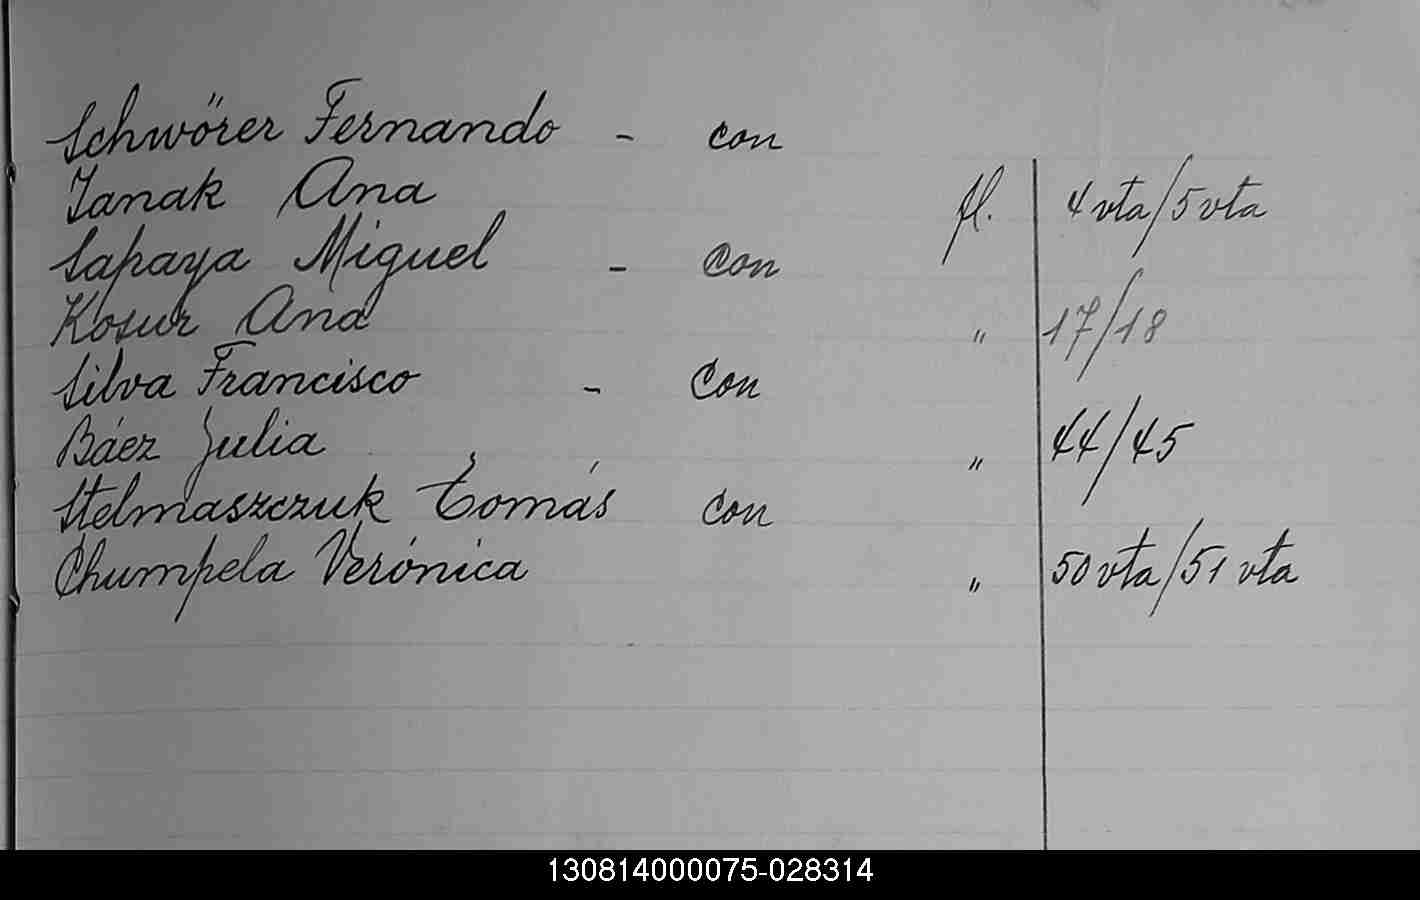 Schwörer Fernando - con
Janak Ana fl. 4 vta/5 vta
Sapaya Miguel - con
Kosur Ana " 17/18
Silva Francisco - Con
Báez Julia " 44/45
Stelmaszczuk Tomás con
Chumpela Verónica " 50 vta/51 vta
130814000075-028314